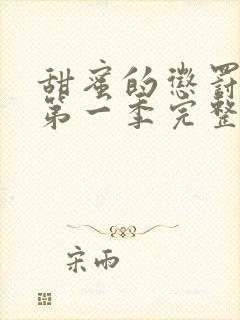 甜蜜的懲罰
第一季完整
宋雨